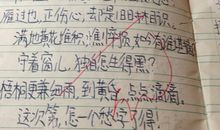 雁过也，正伤心，却是旧时相识。
满地黄花堆积，憔悴损，如今有谁堪摘
守着窗儿，独自怎生得黑？
梧桐更兼细雨，到黄昏，点点滴滴。
这次第，怎一个愁字了得！